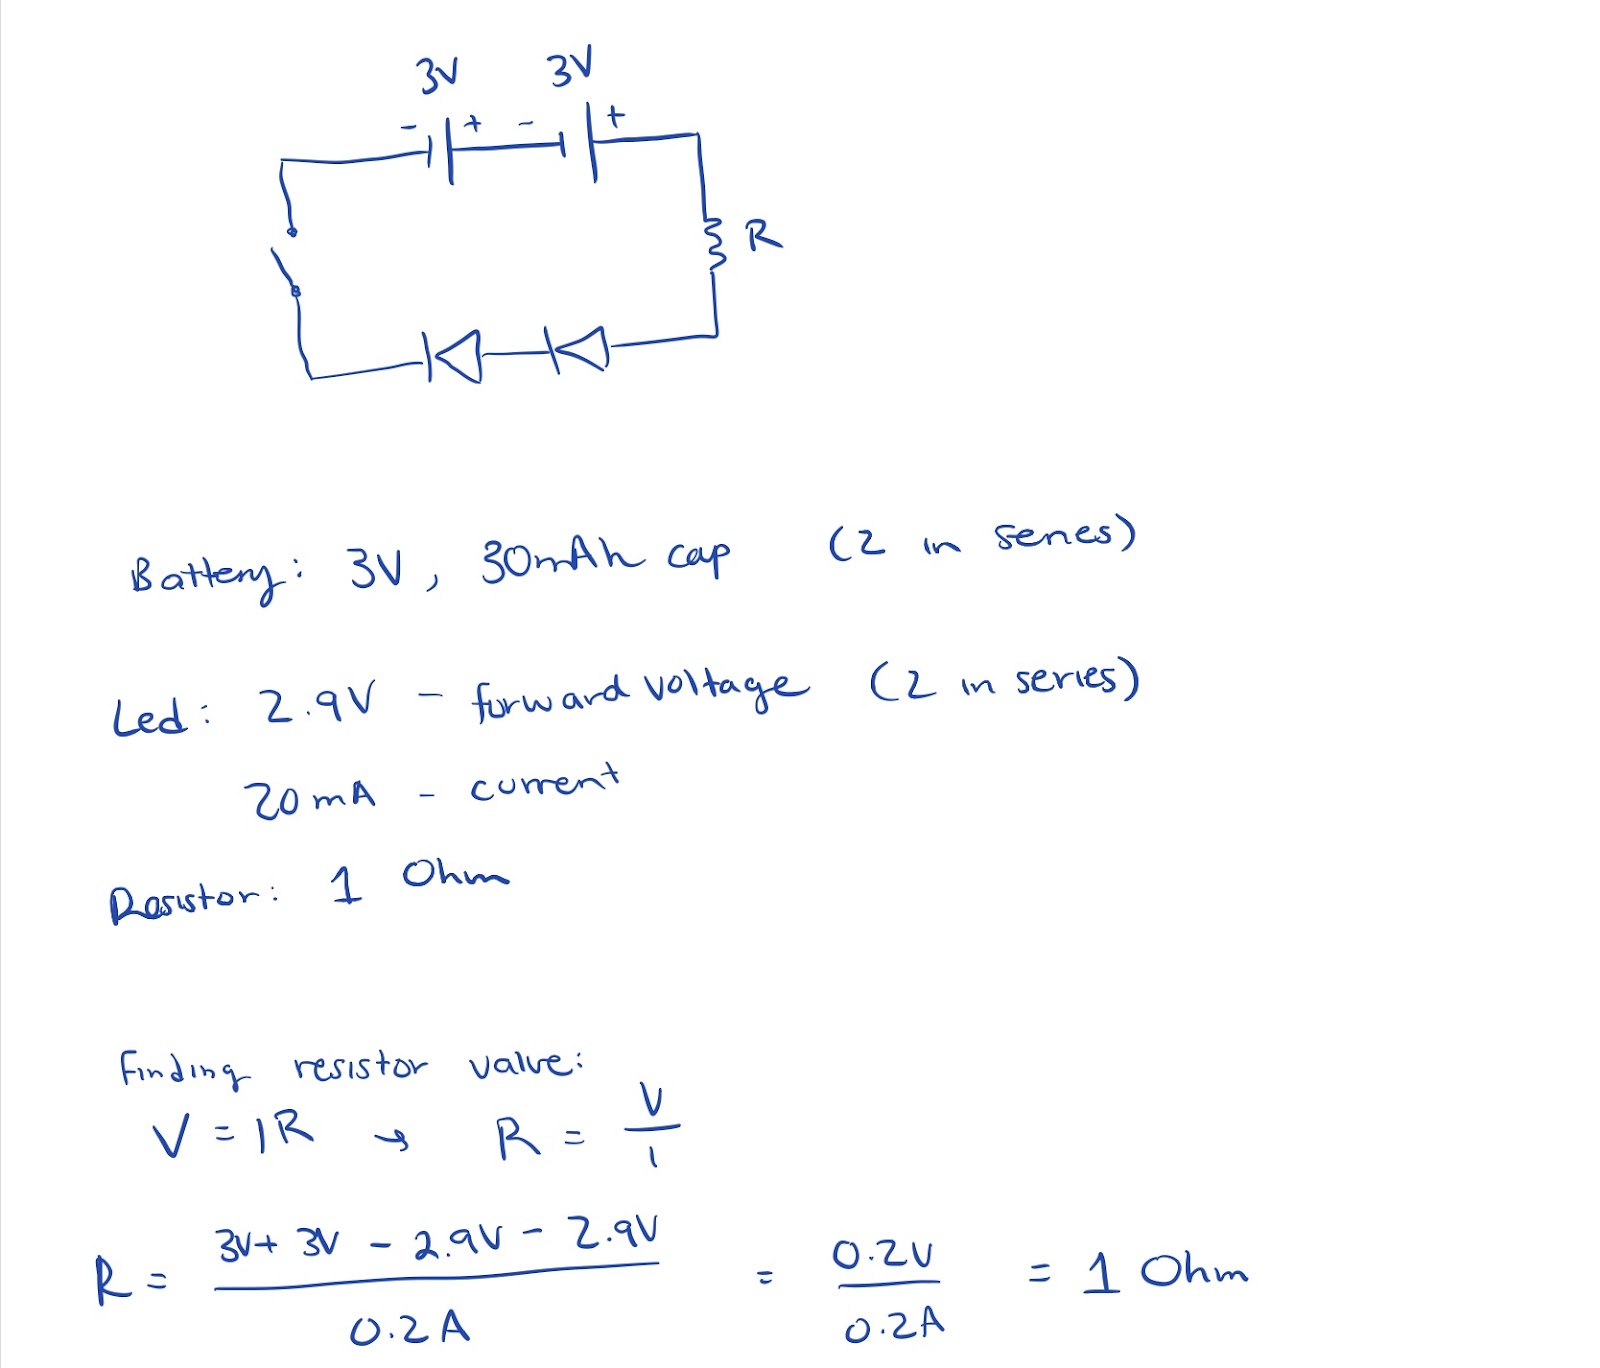 3V 3V
- + - +
R
Battery: 3V, 30mAh cap (2 in series)
Led: 2.9V - forward voltage (2 in series)
20mA - current
Resistor: 1 Ohm
Finding resistor value:
V = IR → R = V/I
R = (3V + 3V - 2.9V - 2.9V)/0.2A = 0.2V/0.2A = 1 Ohm